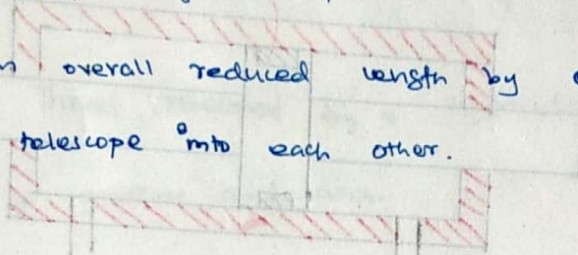 overall reduced length by
telescope into each other.